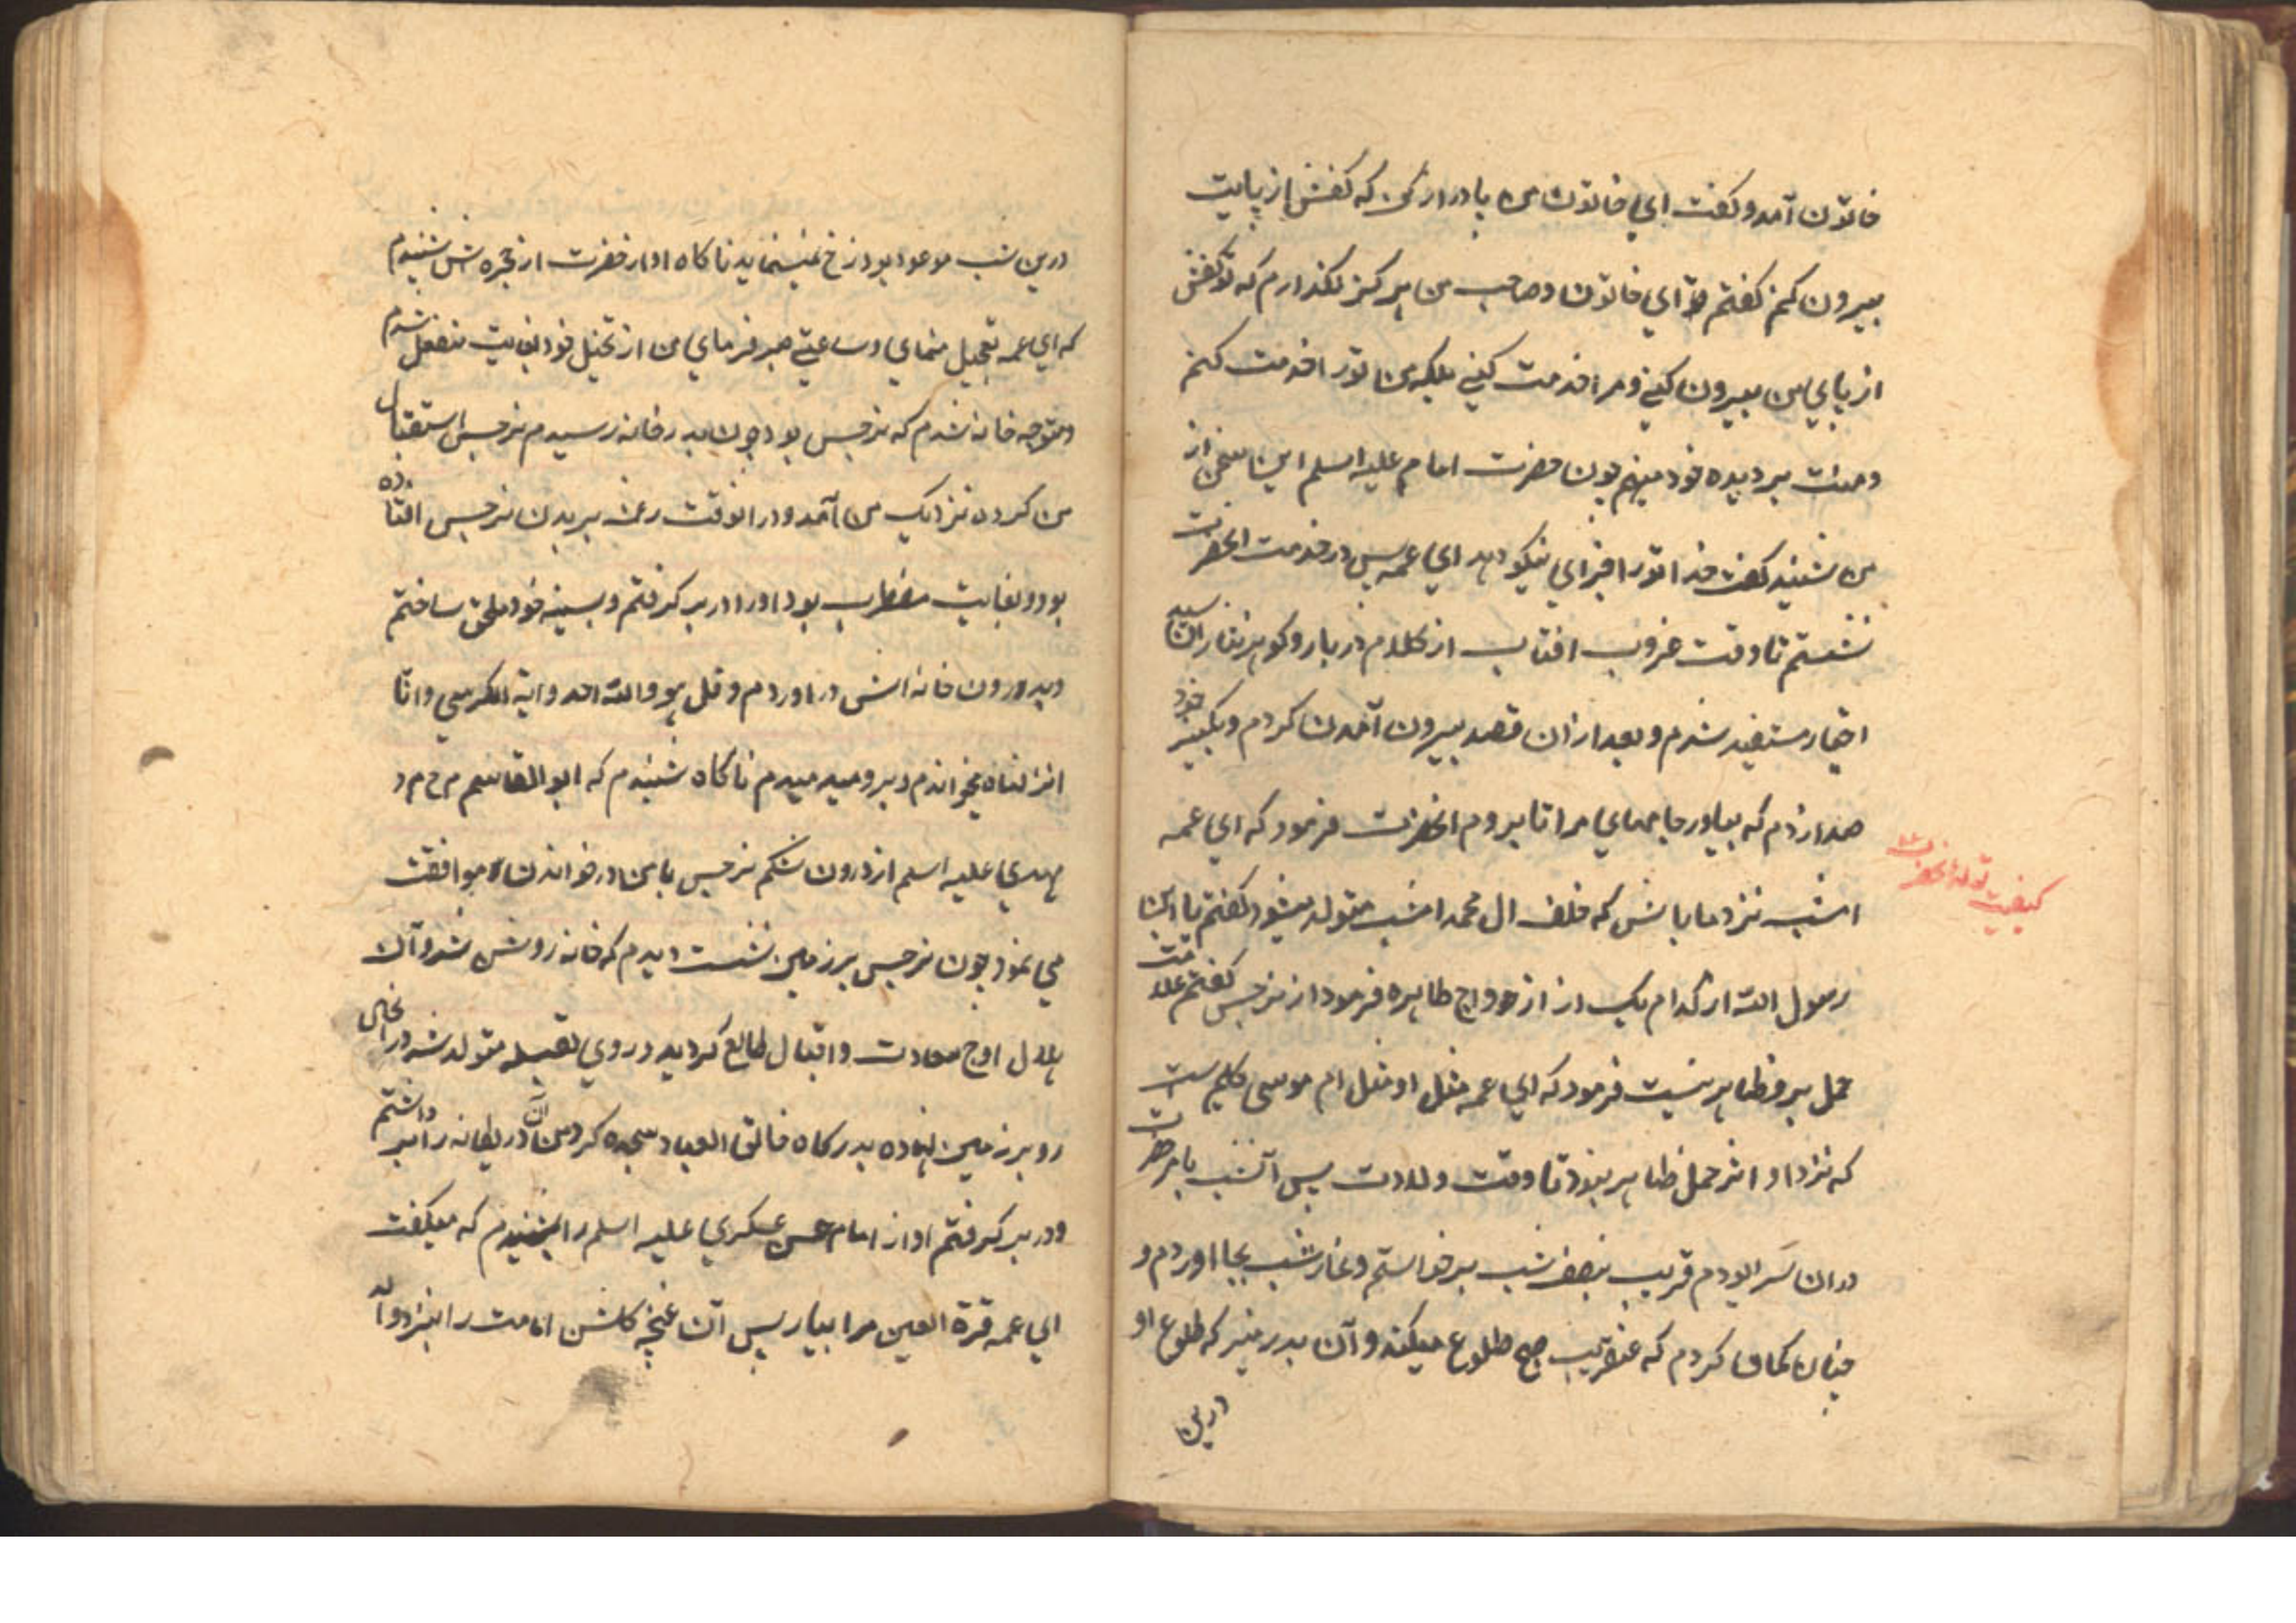 خاتون آمد و کفت ای خاتون من پا دراز کن که کفش از پایت
بیرون کنم کفتم تو ای خاتون و صاحب من هرکز نکذارم که تو کفش
از پای من بیرون کنی و مرا خدمت کنی بلکه من تو را خدمت کنم
و منت بر دیده خود مینهم چون حضرت امام علیه السلم این سخن از
من شنید کفت خدا تو را جزای نیکو دهد ای عمه پس در خدمت انحضرت
نشستم تا وقت غروب افتاب از کلام درّ بار و کوهر نثار ان سید
اخیار مستفید شدم و بعد از ان قصد بیرون آمدن کردم و بکنیز خود
صدا زدم که بیاور جامهای مرا تا بروم انحضرت فرمود که ای عمه
امشب نزد ما باش که خلف ال محمد امشب متولد میشود کفتم یا ابن
رسول الله از کدام یک از ازواج طاهره فرمود از نرجس کفتم علامت
حمل برو ظاهر نیست فرمود که ای عمه مثل او مثل ام موسی کلیم است
که نزد او اثر حمل ظاهر نبود تا وقت ولادت پس آنشب بامر حضرت
در ان سرا بودم قریب بنصف شب برخواستم و نماز شب بجا اوردم و
چنان کمان کردم که عنقریب صبح طلوع میکند و آن بدر منیر که طلوع او
درین
کیفیت تولد انحضرت
درین شب موعود بود رخ نمینماید ناکاه اواز حضرت از حجره اش شنیدم
که ای عمه تعجیل منمای و ساعتی صبر فرمای من از تخیل خود بغایت منفعل شدم
و متوجه خانه شدم که نرجس بود چون بدر خانه رسیدم نرجس استقبال
من کرده نزدیک من آمد و در انوقت رعشه بر بدن نرجس افتاده
بود و بغایت مضطرب بود اورا در بر کرفتم و بسینه خود ملحق ساختم
و بدرون خانه اش در اوردم و قل هو والله احد و ایة الکرسی و انّا
انزلناه میخواندم و برو میدمیدم ناکاه شنیدم که ابو القاسم م ح م د
مهدی علیه اسلم از درون شکم نرجس با من در خواندن موافقت
می نمود چون نرجس بر زمین نشست دیدم که خانه روشن شد و آن
هلال اوج سعادت و اقبال طالع کردید و روی بقبله متولد شد در انحال
رو بر زمین نهاده بدرکاه خالق العباد سجده کرد من ان در یکانه را برداشتم
و در بر کرفتم اواز امام حسن عسکری علیه اسلم را شنیدم که میکفت
ای عمه قرة العین مرا بیار پس آن غنچه کلشن امامت را بنزد والد